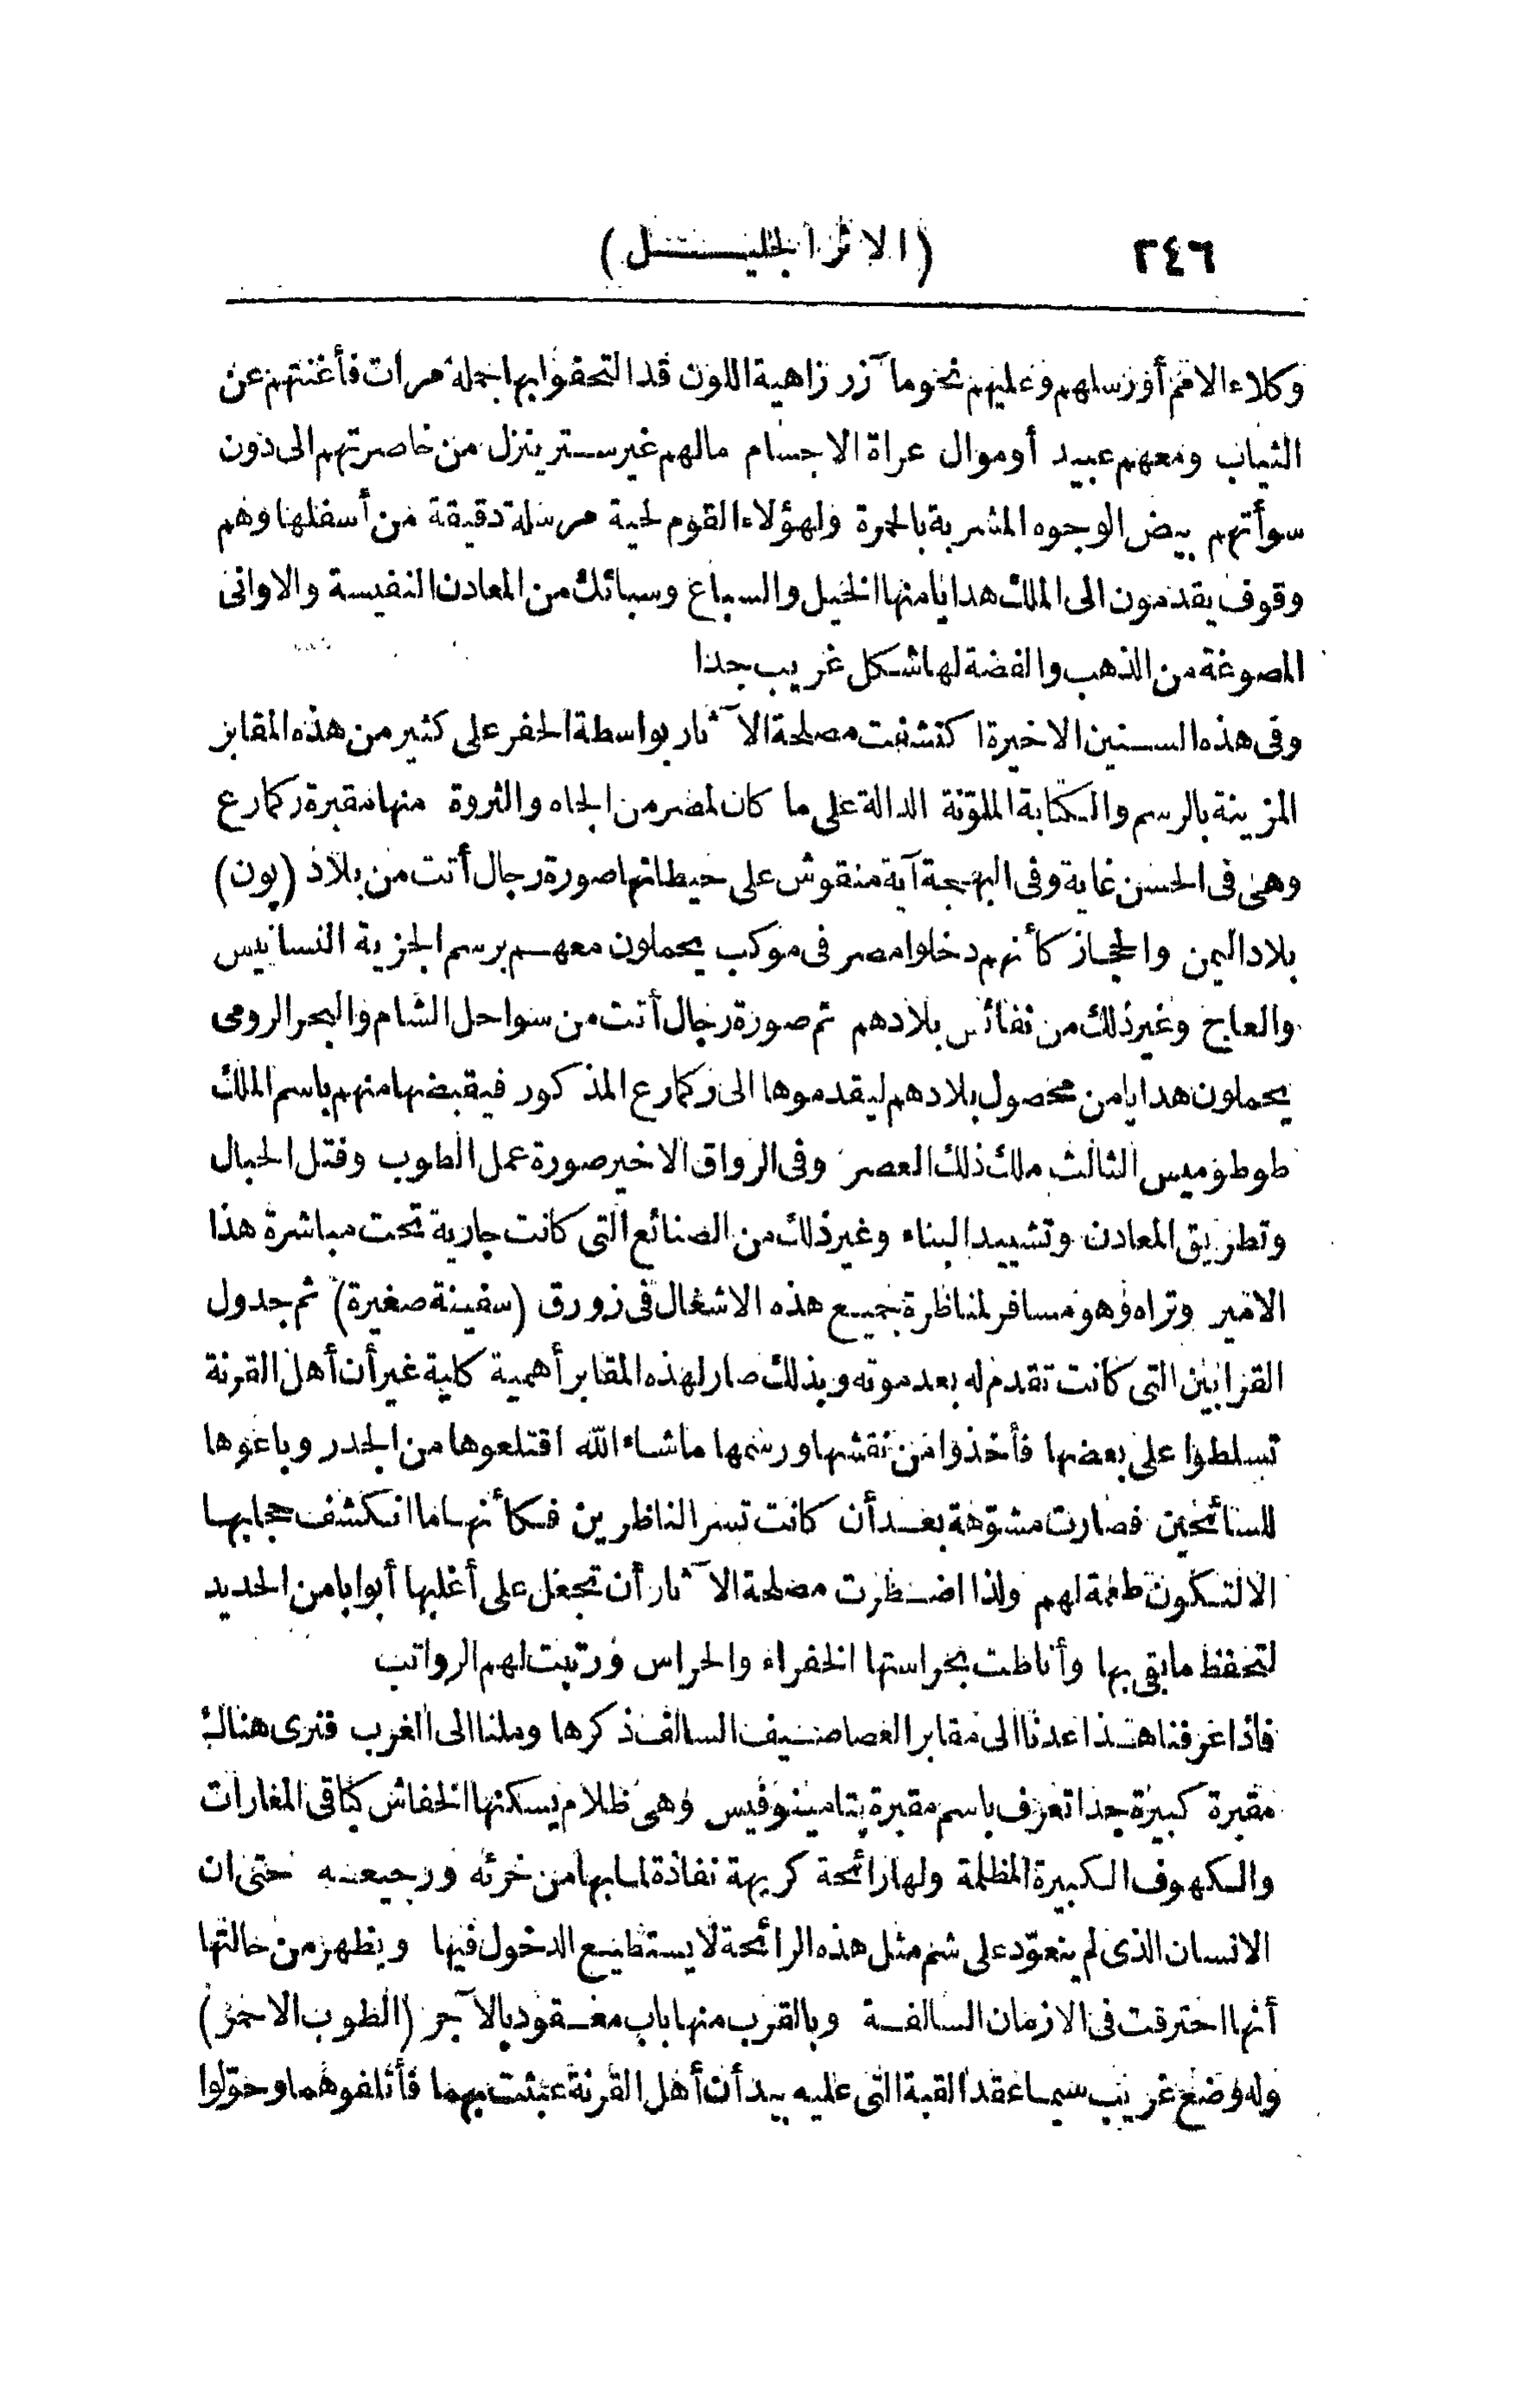 ٢٤٦ (الاثر الجليل)
وكلاء الامم أو رسلهم وعليهم نحو مآزر زاهية اللون قد التحفوا بها جملة مرات فأغنتهم عن
الثياب ومعهم عبيد أو موال عراة الاجسام مالهم غير ستر ينزل من خاصرتهم الى دون
سوأتهم بيض الوجوه المشربة بالحمرة ولهؤلاء القوم لحية مرسلة دقيقة من أسفلها وهم
وقوف يقدمون الى الملك هدايا منها الخيل والسباع وسبائك من المعادن النفيسة والاوانى
المصوغة من الذهب والفضة لها شكل غريب جدا
وفى هذه السنين الاخيرة اكتشفت مصلحة الآثار بواسطة الحفر على كثير من هذه المقابر
المزينة بالرسم والكتابة الملوّنة الدالة على ما كان لمصر من الجاه والثروة منها مقبرة ركمارع
وهى فى الحسن غاية وفى البهجة آية منقوش على حيطانها صورة رجال أتت من بلاد (پون)
بلاد اليمن والحجاز كأنهم دخلوا مصر فى موكب يحملون معهم برسم الجزية النسانيس
والعاج وغير ذلك من نفائس بلادهم ثم صورة رجال أتت من سواحل الشام والبحر الرومى
يحملون هدايا من محصول بلادهم ليقدموها الى ركمارع المذكور فيقبضها منهم باسم الملك
طوطوميس الثالث ملك ذلك العصر وفى الرواق الاخير صورة عمل الطوب وفتل الحبال
وتطريق المعادن وتشييد البناء وغير ذلك من الصنائع التى كانت جارية تحت مباشرة هذا
الامير وتراه وهو مسافر لمناظرة جميع هذه الاشغال فى زورق (سفينة صغيرة) ثم جدول
القرابين التى كانت تقدم له بعد موته وبذلك صار لهذه المقابر أهمية كلية غير أن أهل القرنة
تسلطوا على بعضها فأخذوا من نقشها ورسمها ماشاء الله اقتلعوها من الجدر وباعوها
للسائحين فصارت مشوّهة بعد أن كانت تسر الناظرين فكأنها ما انكشف حجابها
الا لتكون طعمة لهم ولذا اضطرت مصلحة الآثار أن تجعل على أغلبها أبوابا من الحديد
لتحفظ مابقى بها وأناطت بحراستها الخفراء والحراس ورتبت لهم الرواتب
فاذا عرفنا هذا عدنا الى مقابر العصاصيف السالف ذكرها وملنا الى الغرب فنرى هناك
مقبرة كبيرة جدا تعرف باسم مقبرة پتامينوفيس وهى ظلام يسكنها الخفاش كباقى المغارات
والكهوف الكبيرة المظلمة ولها رائحة كريهة نفاذة لما بها من خرئه ورجيعه حتى ان
الانسان الذى لم يتعوّد على شم مثل هذه الرائحة لا يستطيع الدخول فيها ويظهر من حالتها
أنها احترقت فى الازمان السالفة وبالقرب منها باب معقود بالآجر (الطوب الاحمر)
وله وضع غريب سيما عقد القبة التى عليه بيد أن أهل القرنة عبثت بهما فأتلفوهما وحوّلوا